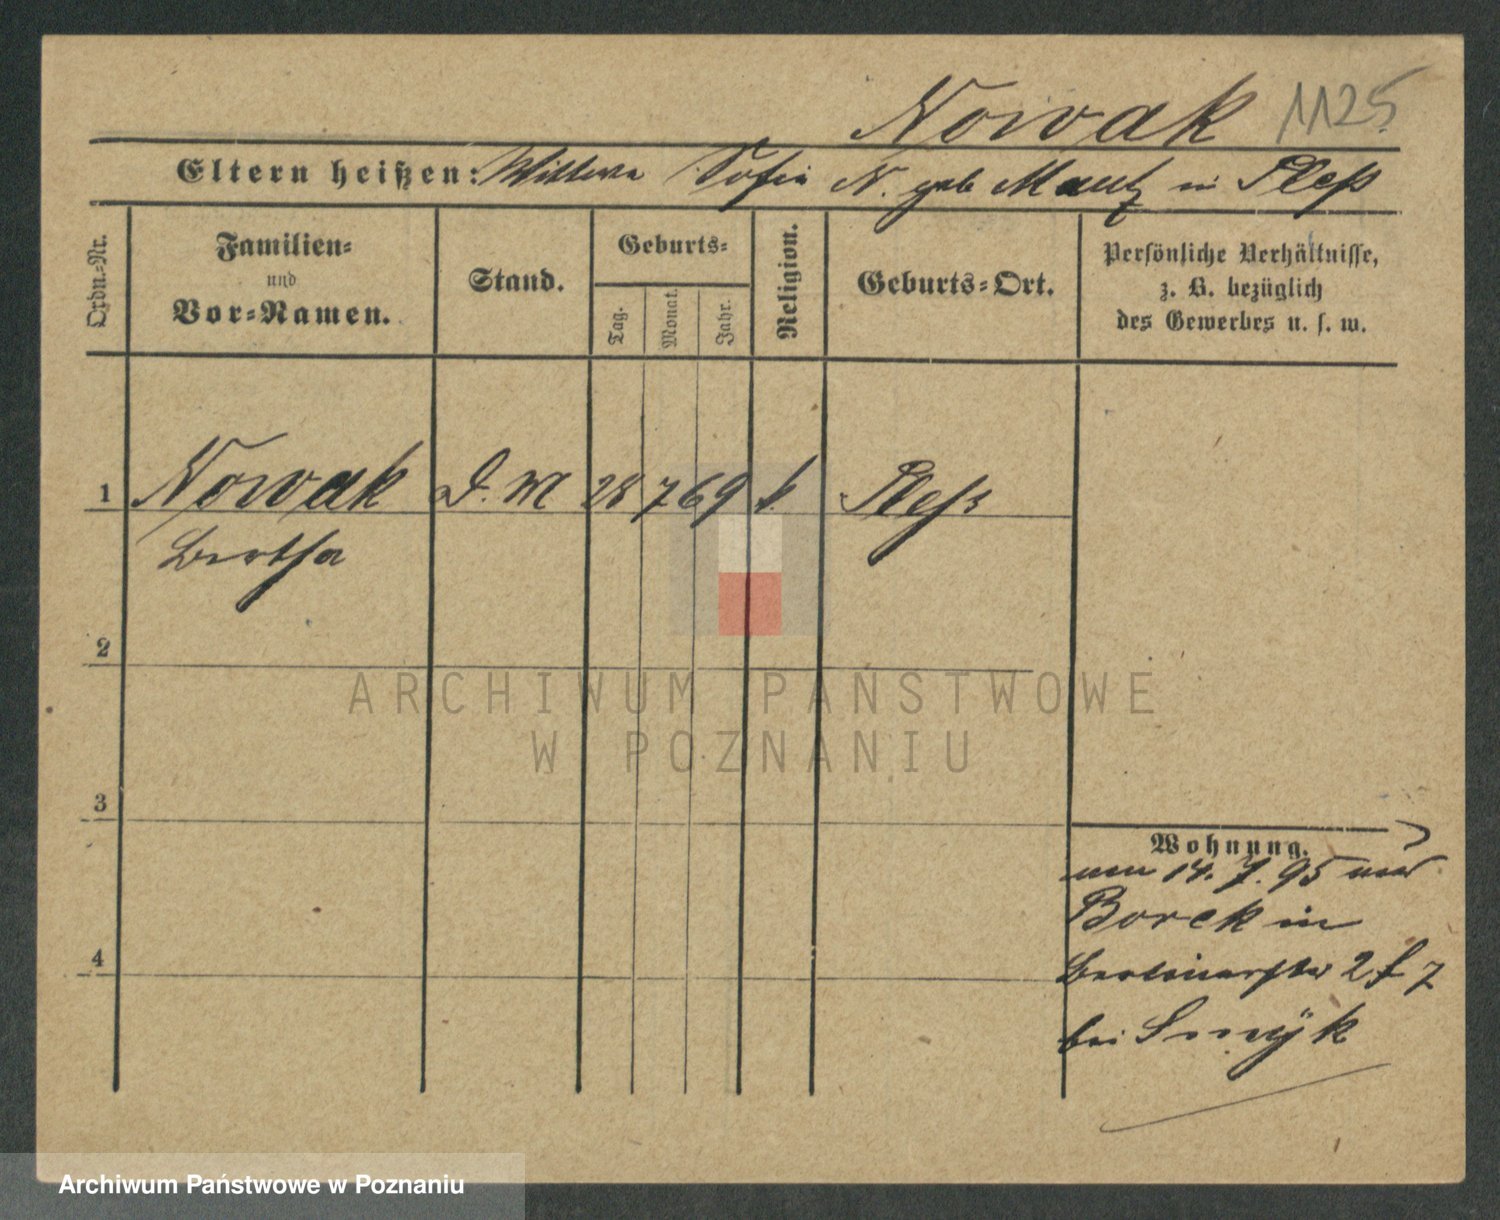 Nowak 1125
Eltern heißen: Wittwe Sofie N. geb Mautz in Pleß
Ordn.-Nr.
Familien-
und
Vor-Namen.
Stand.
Geburts-
Tag.
Monat.
Jahr.
Religion.
Geburts-Ort.
Persönliche Verhältnisse,
z. B. bezüglich
des Gewerbes u. s. w.
1 Nowak D. M 28 7 69 k. Pleß
Bertha
2
3
4
Wohnung.
14. 7. 95
Borek in
Berlinerstr 2
bei Smÿk
ARCHIWUM PAŃSTWOWE
W POZNANIU
Archiwum Państwowe w Poznaniu